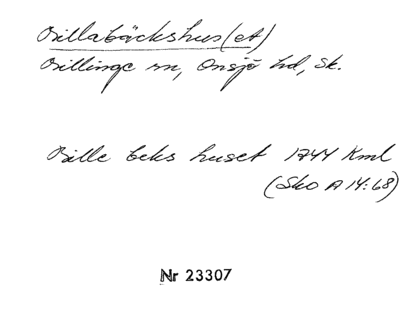 Billabäckshus(et)
Billinge sn, Onsjö hd, Sk.
Bille beks huset 1744 Kml
(Sko A 14:68)
Nr 23307